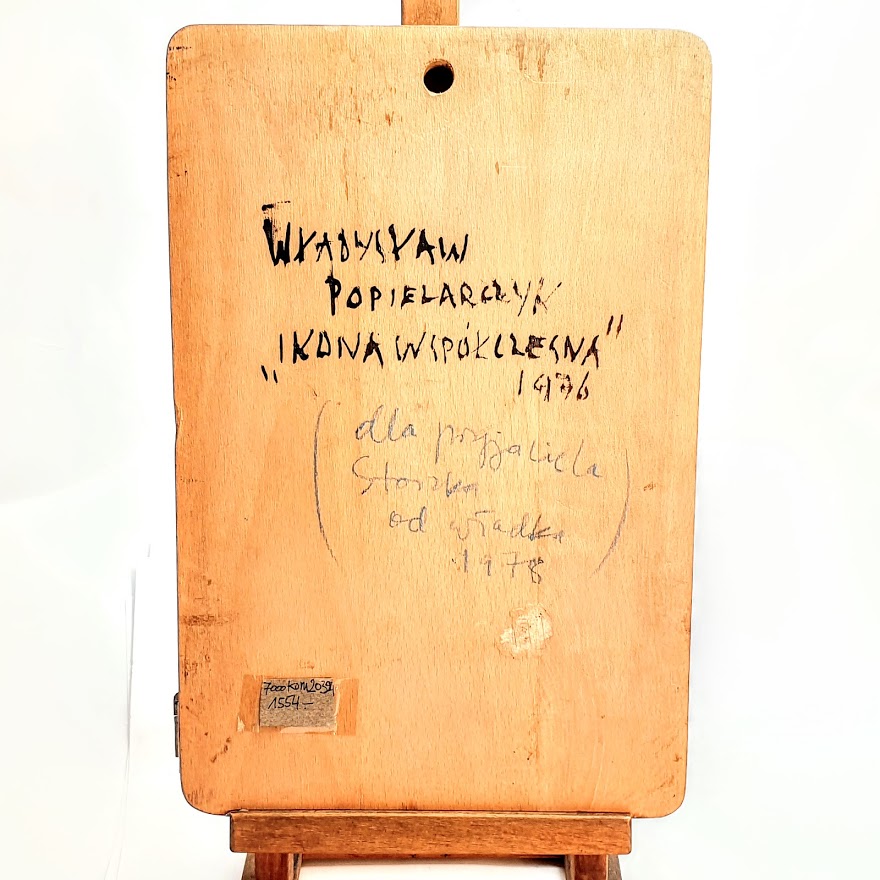 WŁADYSŁAW
POPIELARCZYK
„IKONA WSPÓŁCZESNA"
1976
(dla przyjaciela
Staszka
od Władka
1978)
7000 Kom 2039
1554-